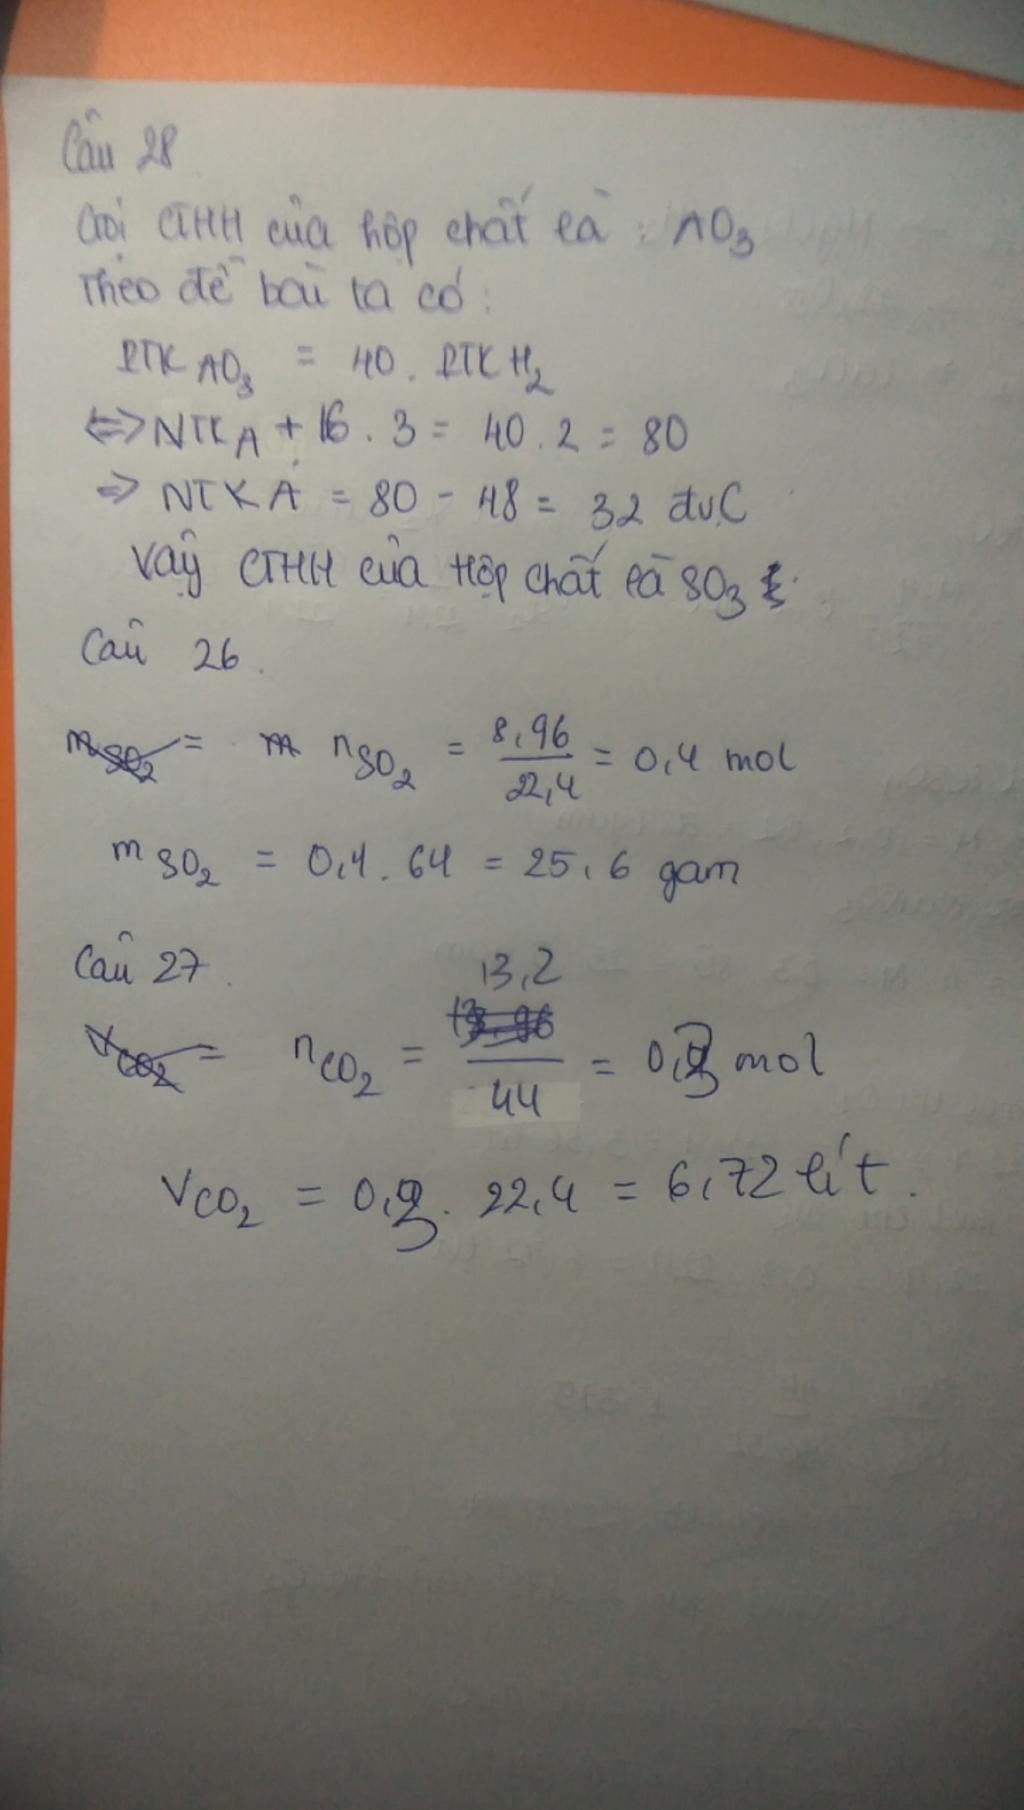 Câu 28
Gọi CTHH của hộp chất là : AO3
Theo đề bài ta có :
PTK AO3 = 40. PTK H2
<=> NTK A + 16 . 3 = 40 . 2 = 80
=> NTK A = 80 - 48 = 32 đvC
Vậy CTHH của Hộp chất là SO3
Câu 26.
mSO2 = m nSO2 = 8,96 / 22,4 = 0,4 mol
mSO2 = 0,4. 64 = 25,6 gam
Câu 27.
VCO2 = nCO2 = 13,2 / 44 = 0,3 mol
VCO2 = 0,3. 22,4 = 6,72 lít.